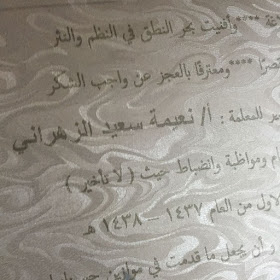 **** وأفنيت بحر النطق في النظم والنثر
**** ومعترفًا بالعجز عن واجب الشكر
للمعلمة : أ/ نعيمة سعيد الزهراني
ومواظبة وانضباط حيث ( لا تأخير )
من العام ١٤٣٧ – ١٤٣٨ هـ
أن يجعل ما قدمت في